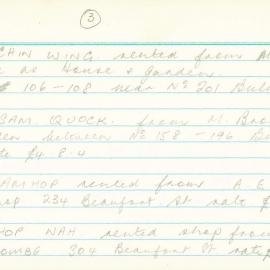 3
CHIN WING rented from
as House & gardens.
106-108 near No 201 Bul
SAM. QUOCK. from M. Bro
between No 158 - 196 Be
£4.8.4
AH HOP rented from A. E.
234 Beaufort. St rate £
HOP WAH rented shop from
COMBE 304 Beaufort St rate